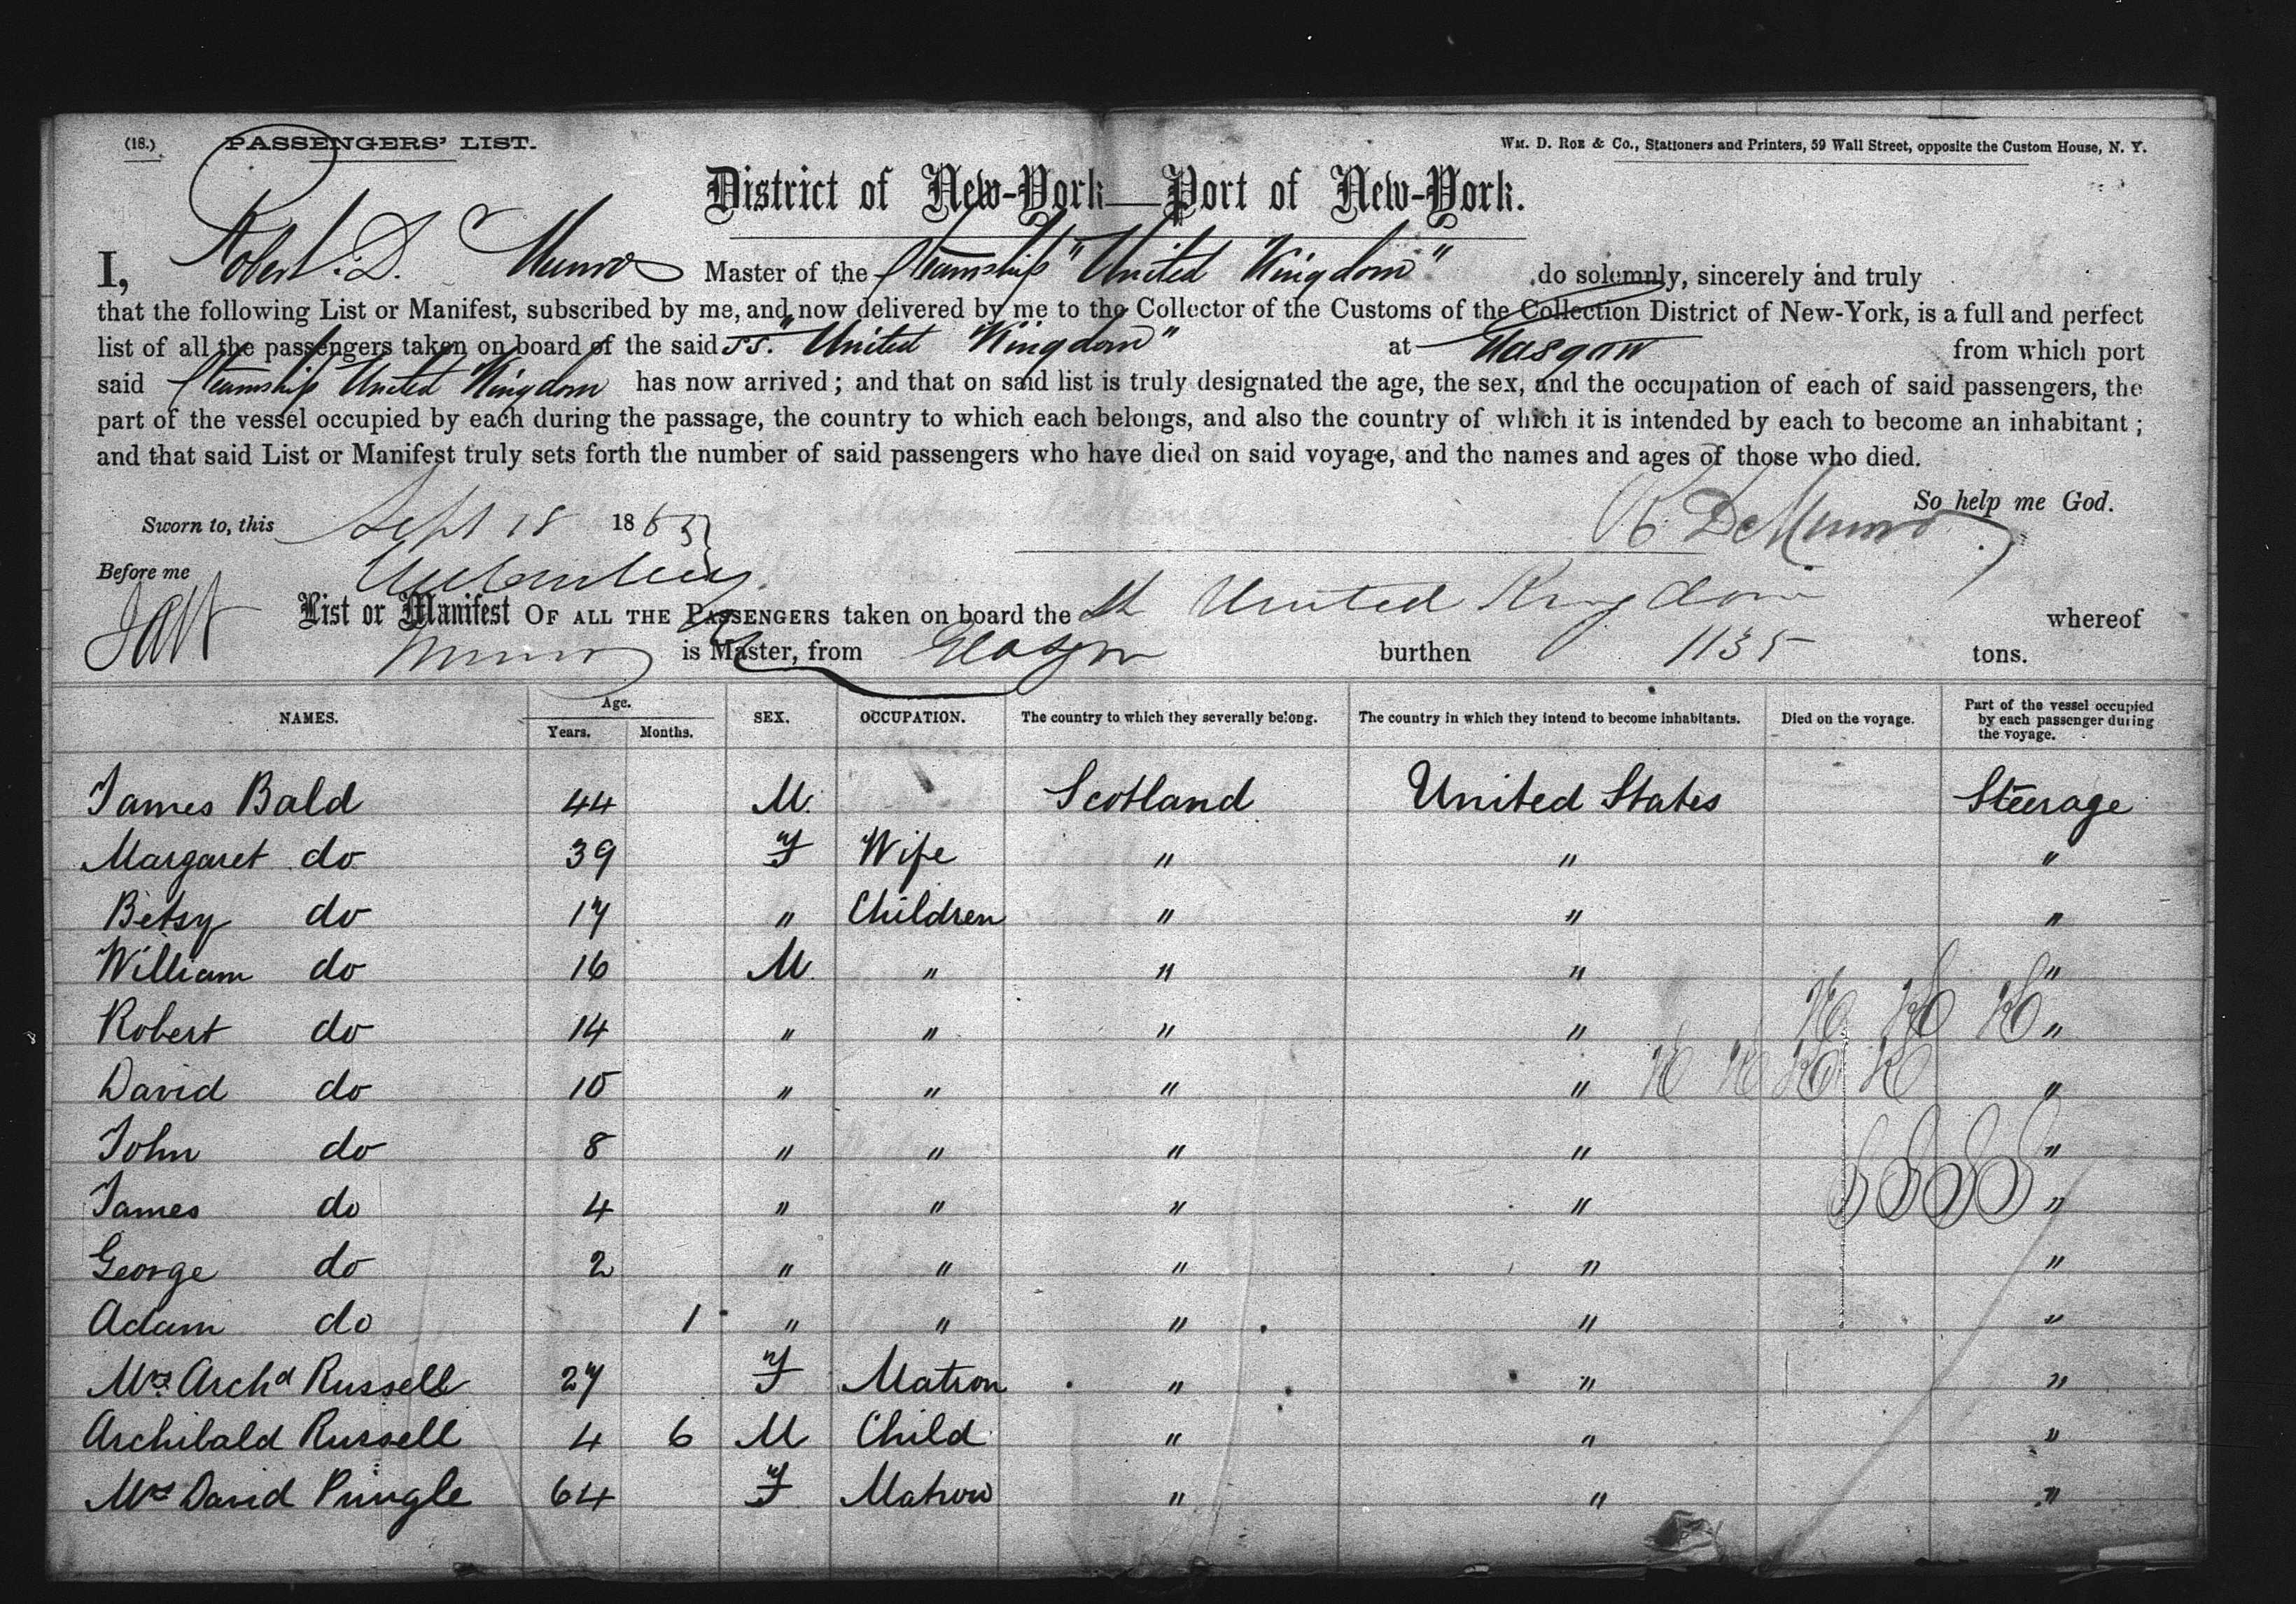 (18.) PASSENGERS' LIST. Wm. D. Roe & Co., Stationers and Printers, 59 Wall Street, opposite the Custom House, N. Y.
District of New-York—Port of New-York.
I, Robert. D. Munro Master of the Steamship "United Kingdom" do solemnly, sincerely and truly
that the following List or Manifest, subscribed by me, and now delivered by me to the Collector of the Customs of the Collection District of New-York, is a full and perfect
list of all the passengers taken on board of the said SS. "United Kingdom" at Glasgow from which port
said Steamship United Kingdom has now arrived; and that on said list is truly designated the age, the sex, and the occupation of each of said passengers, the
part of the vessel occupied by each during the passage, the country to which each belongs, and also the country of which it is intended by each to become an inhabitant;
and that said List or Manifest truly sets forth the number of said passengers who have died on said voyage, and the names and ages of those who died.
So help me God.
Sworn to, this Sept 18 1863 R D Munro
Before me
List or Manifest OF ALL THE PASSENGERS taken on board the United Kingdom whereof
Munro is Master, from Glasgow burthen 1135 tons.
NAMES. Age. Years. Months. SEX. OCCUPATION. The country to which they severally belong. The country in which they intend to become inhabitants. Died on the voyage. Part of the vessel occupied by each passenger during the voyage.
James Bald 44 M. Scotland United States Steerage
Margaret do 39 F Wife " " "
Betsy do 17 " Children " " "
William do 16 M " " " "
Robert do 14 " " " " "
David do 10 " " " " "
John do 8 " " " " "
James do 4 " " " " "
George do 2 " " " " "
Adam do 1 " " " " "
Mrs Archd Russell 27 F Matron " " "
Archibald Russell 4 6 M Child " " "
Mrs David Pringle 64 F Matron " " "